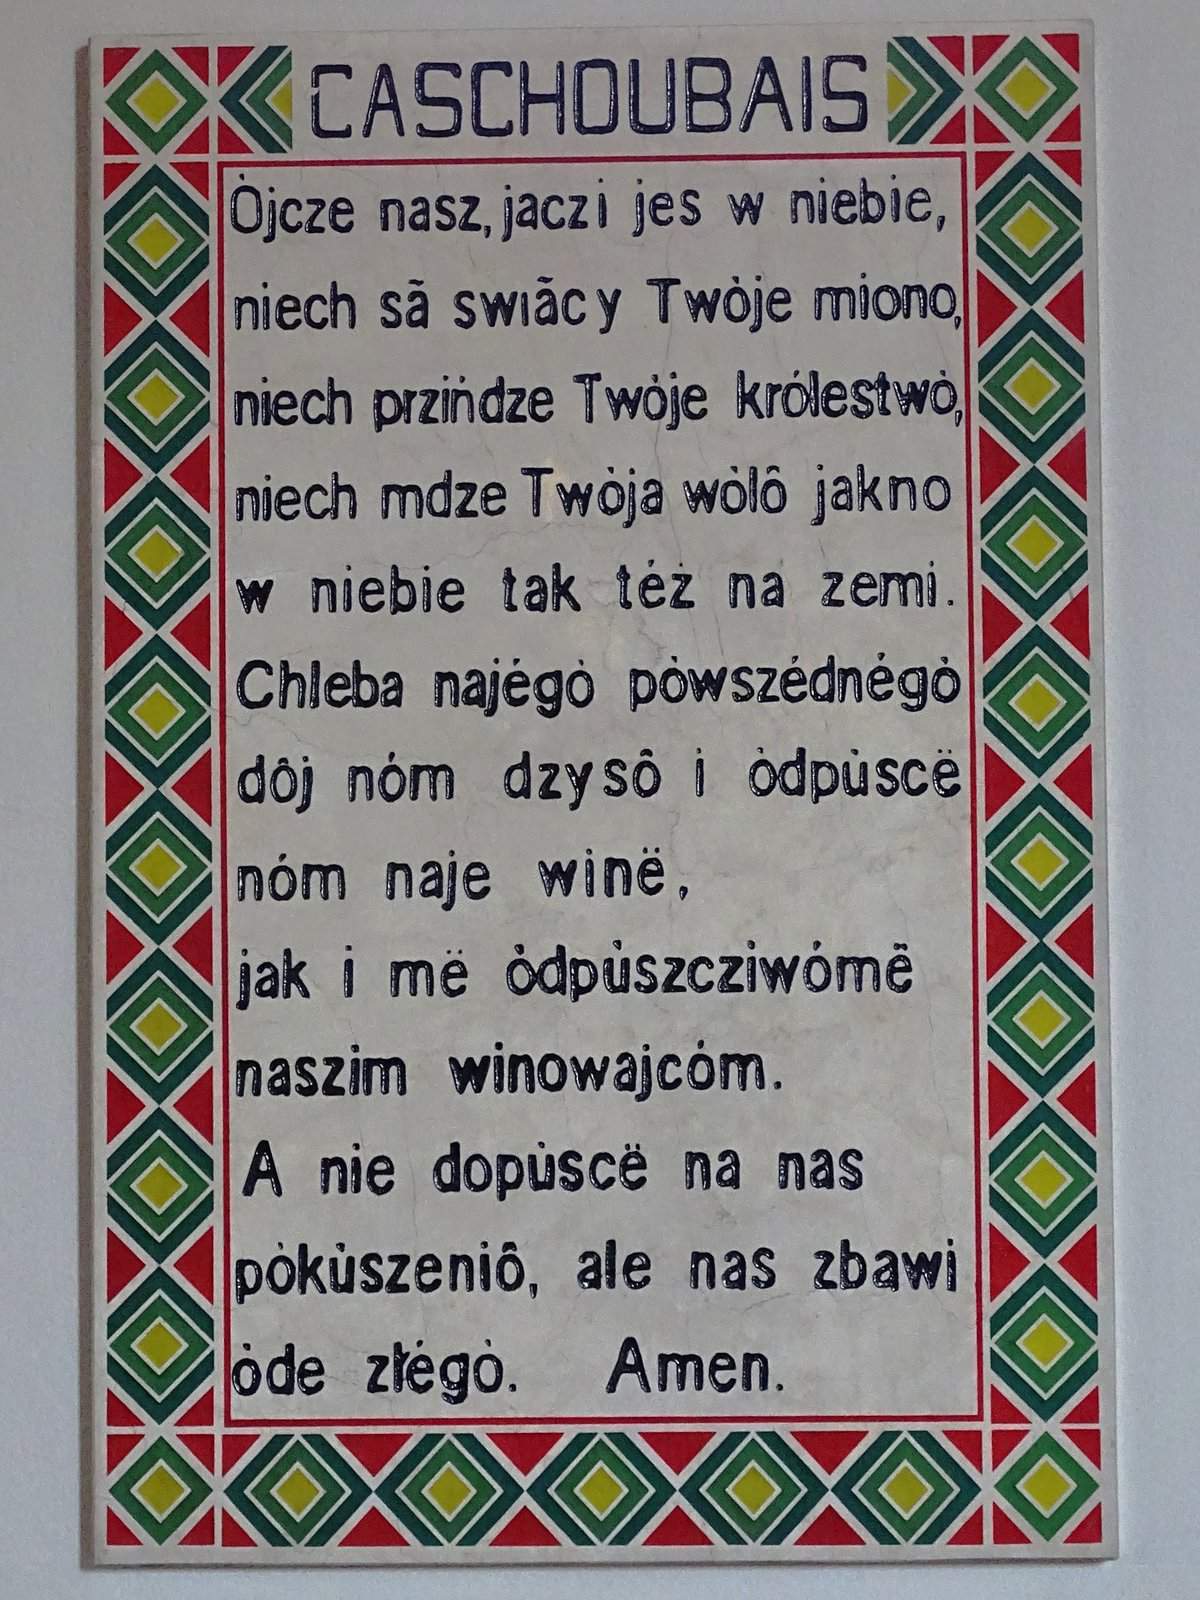 CASCHOUBAIS
Òjcze nasz, jaczi jes w niebie,
niech sã swiãcy Twòje miono,
niech przińdze Twòje królestwò,
niech mdze Twòja wòlô jakno
w niebie tak téż na zemi.
Chleba najégò pòwszédnégò
dôj nóm dzysô i òdpùscë
nóm naje winë,
jak i më òdpùszcziwómë
naszim winowajcóm.
A nie dopùscë na nas
pòkùszeniô, ale nas zbawi
òde złégò. Amen.